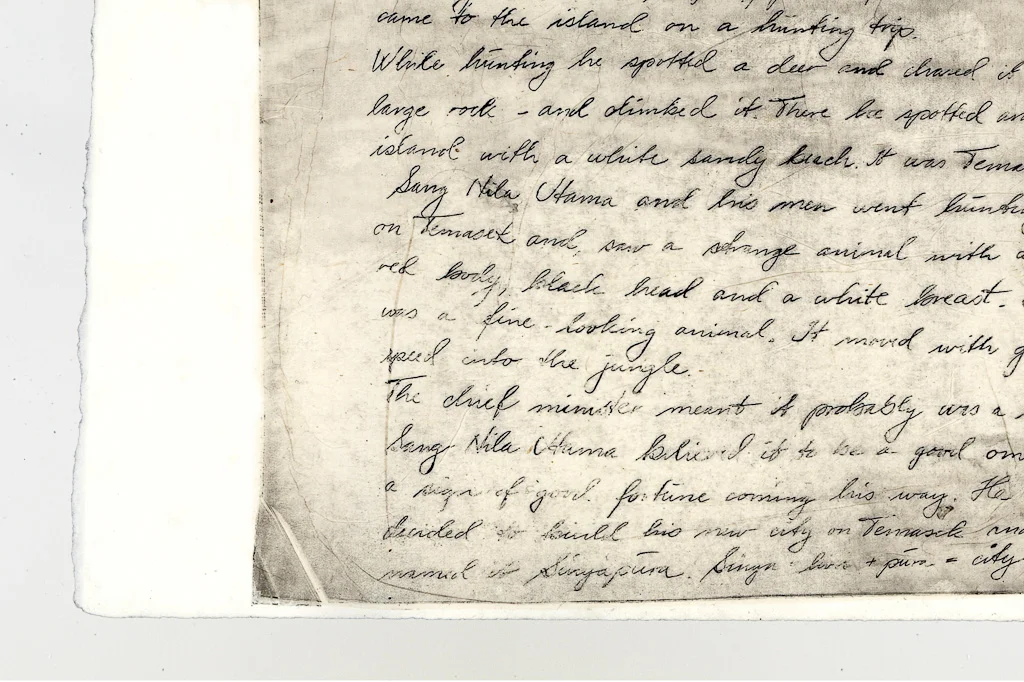 came to the island on a hunting trip.
While hunting he spotted a deer and chased it
large rock - and climbed it. There he spotted an
island with a white sandy beach. It was Tema
Sang Nila Utama and his men went hunting
on Temasek and saw a strange animal with a
red body, black head and a white breast.
was a fine-looking animal. It moved with g
speed into the jungle.
The chief minister meant it probably was a
Sang Nila Utama believed it to be a good om
a sign of good fortune coming his way. He
decided to build his new city on Temasek
named it Singapura. Singa = lion + pura = city